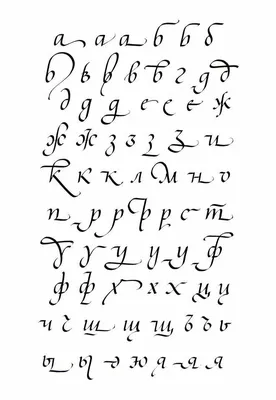 а а а б б б
в в в в в г д д
д д д е е е ж
ж ж з з з и и
к к к л м н о
п р р р р с т
у у у у у ф
ф ф х х х ц ц
ч ч ш ш щ ъ ъ ы
ы ы э ю я я я